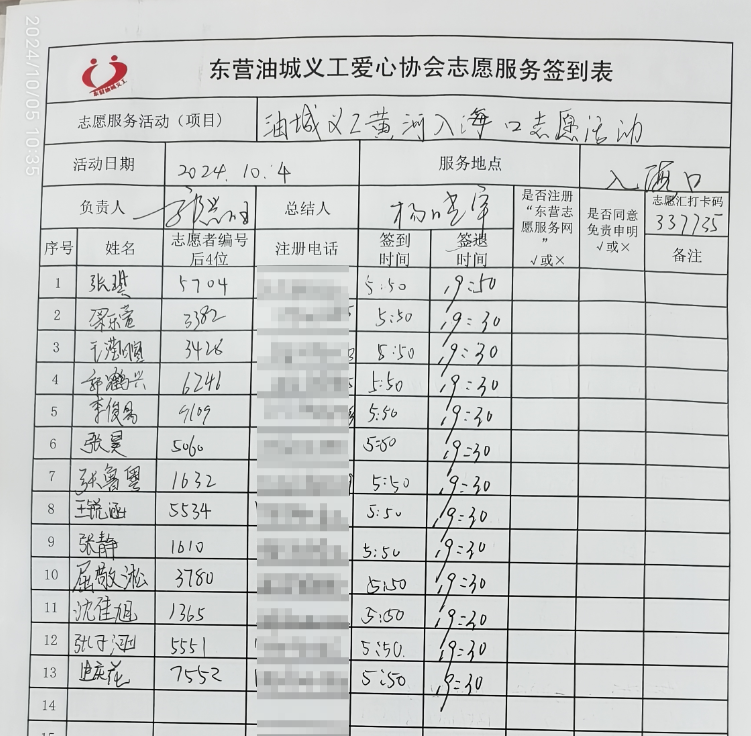 2024/10/05 10:35
东营油城义工爱心协会志愿服务签到表
志愿服务活动（项目） 油城义工黄河入海口志愿活动
活动日期 2024.10.4 服务地点 入海口
负责人 总结人 是否注册“东营志愿服务网” √或× 是否同意免责申明 √或× 志愿汇打卡码 337735
序号 姓名 志愿者编号后4位 注册电话 签到时间 签退时间 备注
1 张琪 5704 5:50 19:50
2 3382 5:50 19:30
3 3426 5:50 19:30
4 6246 5:50 19:30
5 李俊 9109 5:50 19:30
6 张昊 5060 5:50 19:30
7 张鲁 1632 5:50 19:30
8 王锐涵 5534 5:50 19:30
9 张静 1610 5:50 19:30
10 屈敬淞 3780 5:50 19:30
11 沈佳旭 1365 5:50 19:30
12 张子涵 5551 5:50 19:30
13 7552 5:50 19:30
14
15